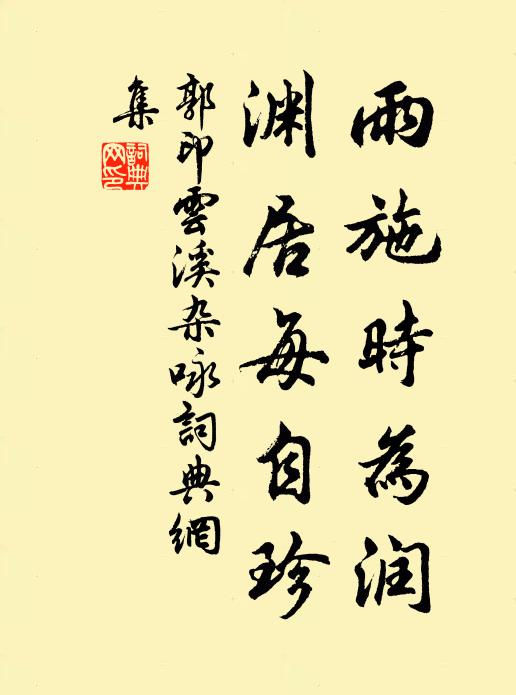 雨施時為润
渊居每自珍
郭印雲溪杂咏詞典網
集
詞典网